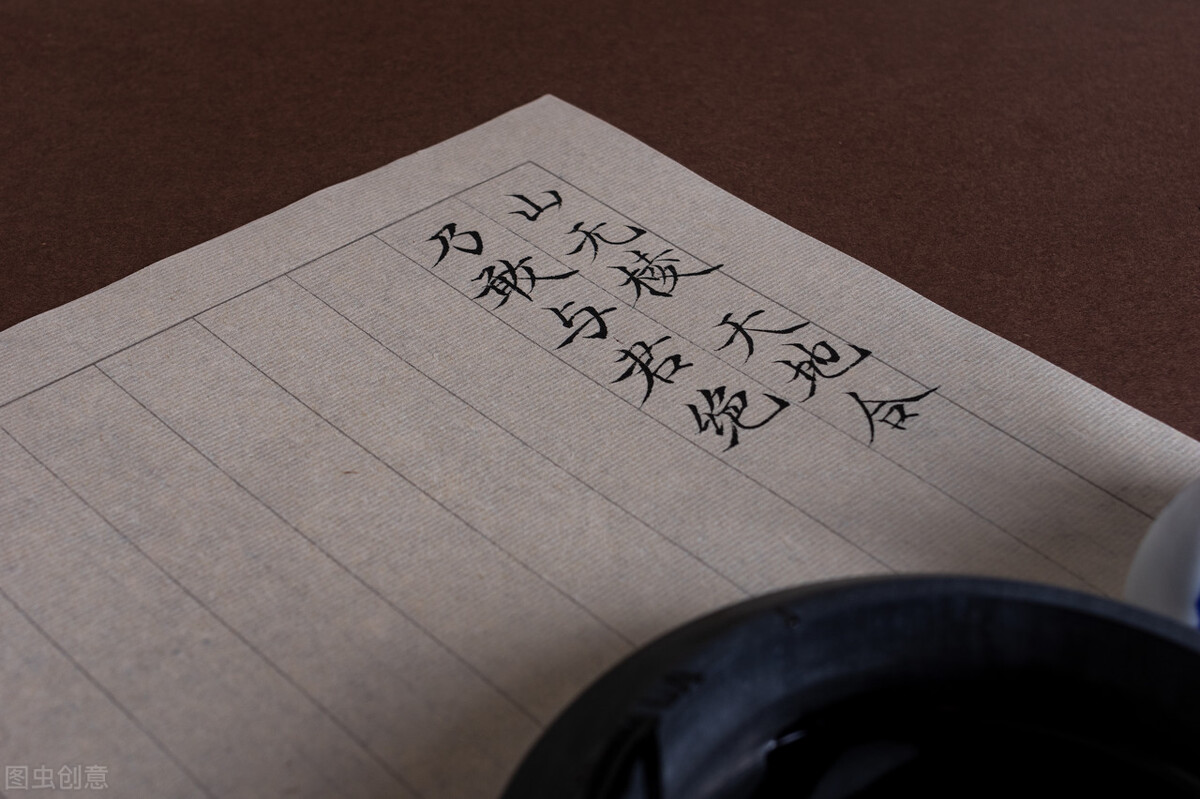 山无棱 天地合
乃敢与君绝
图虫创意